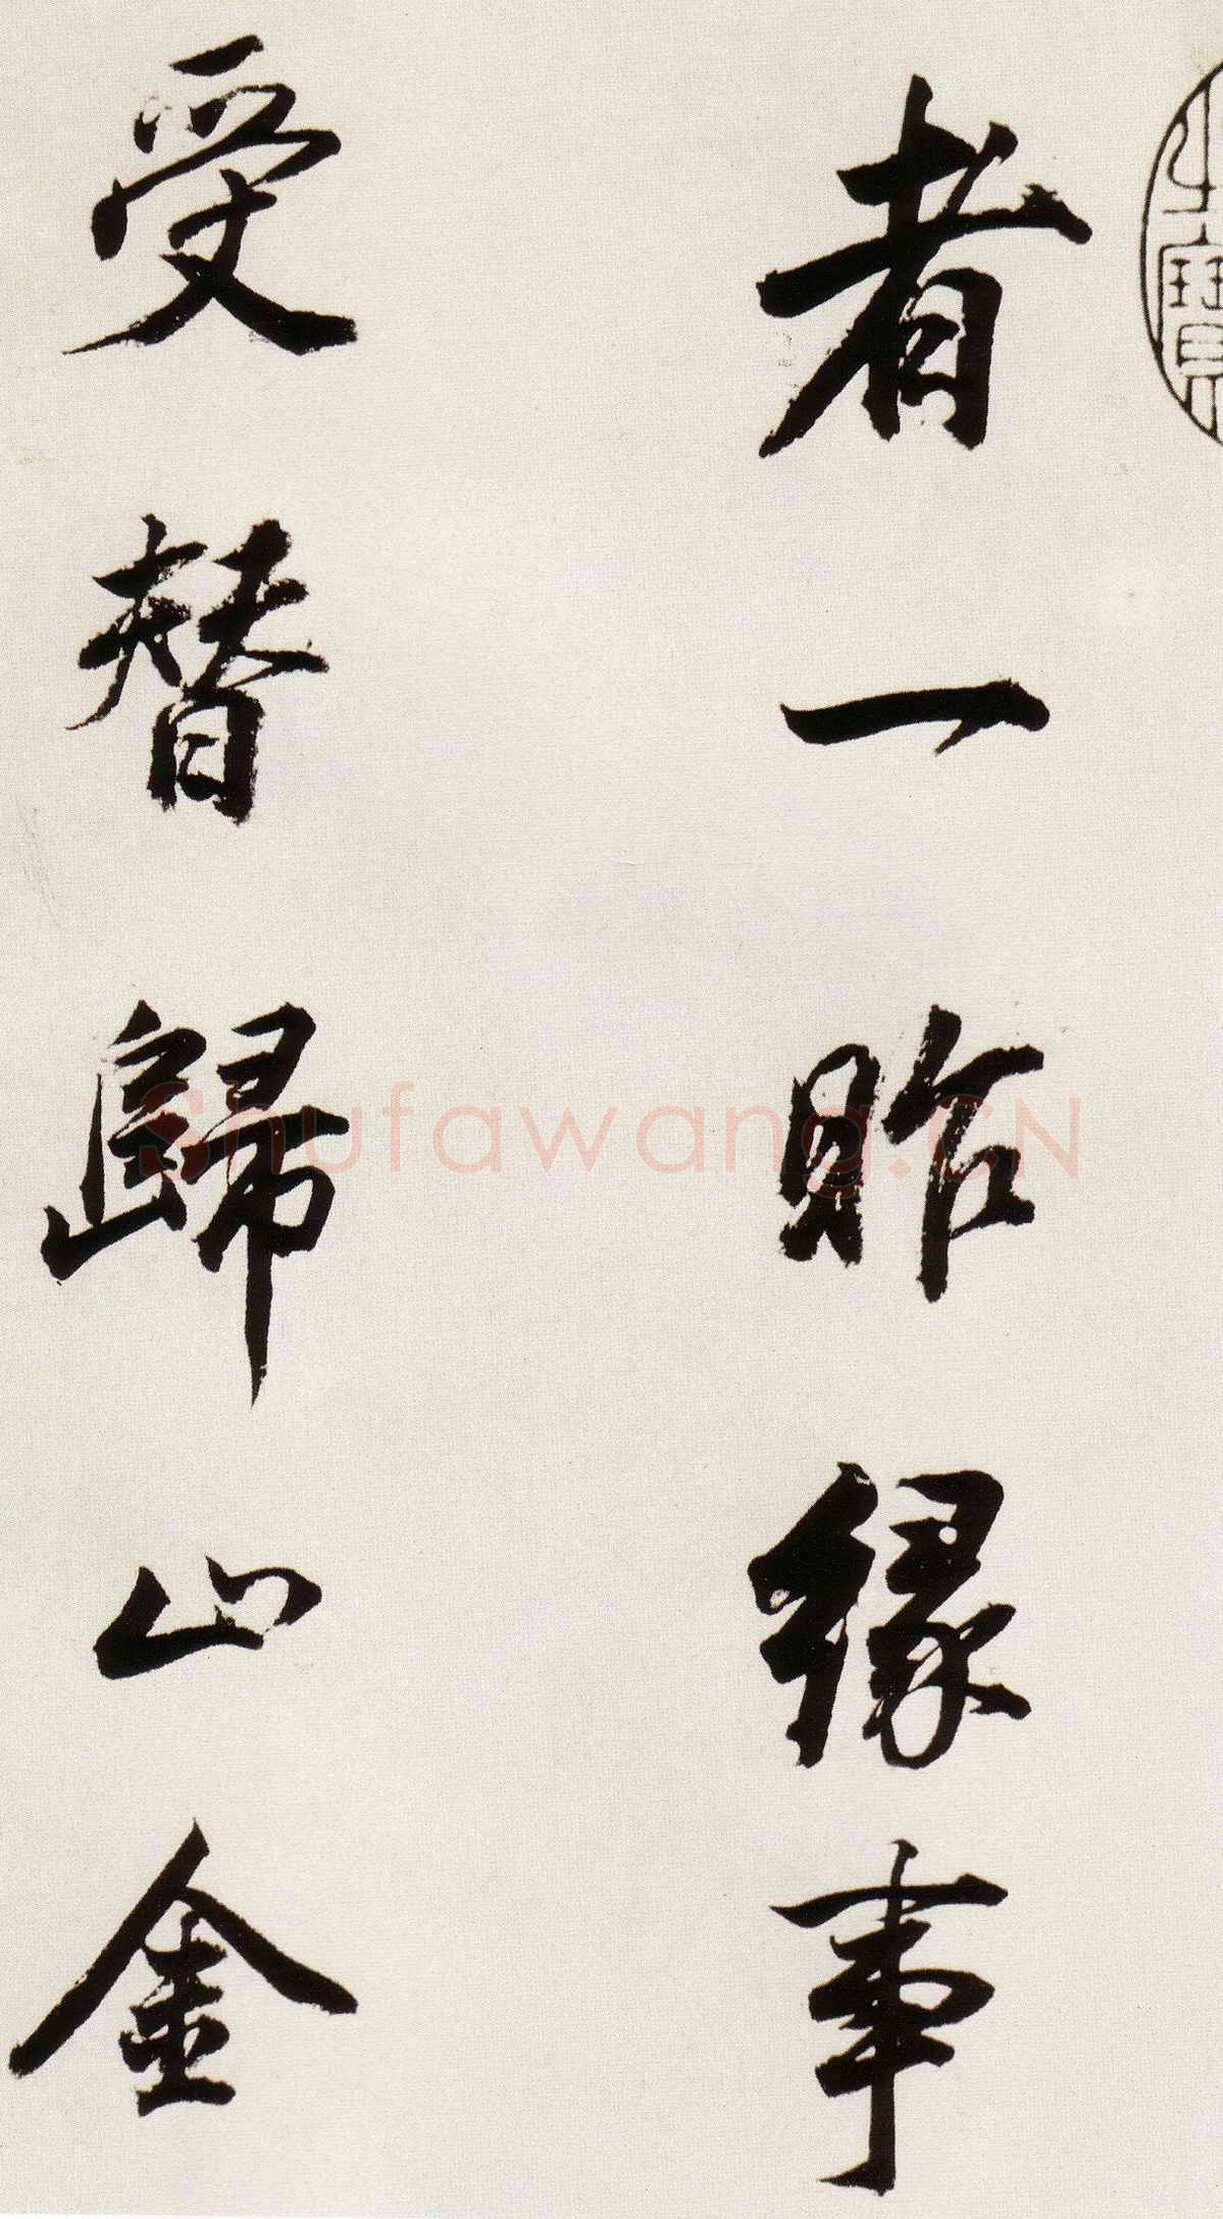 者一昨緣事
受替歸山金
Shufawang.CN